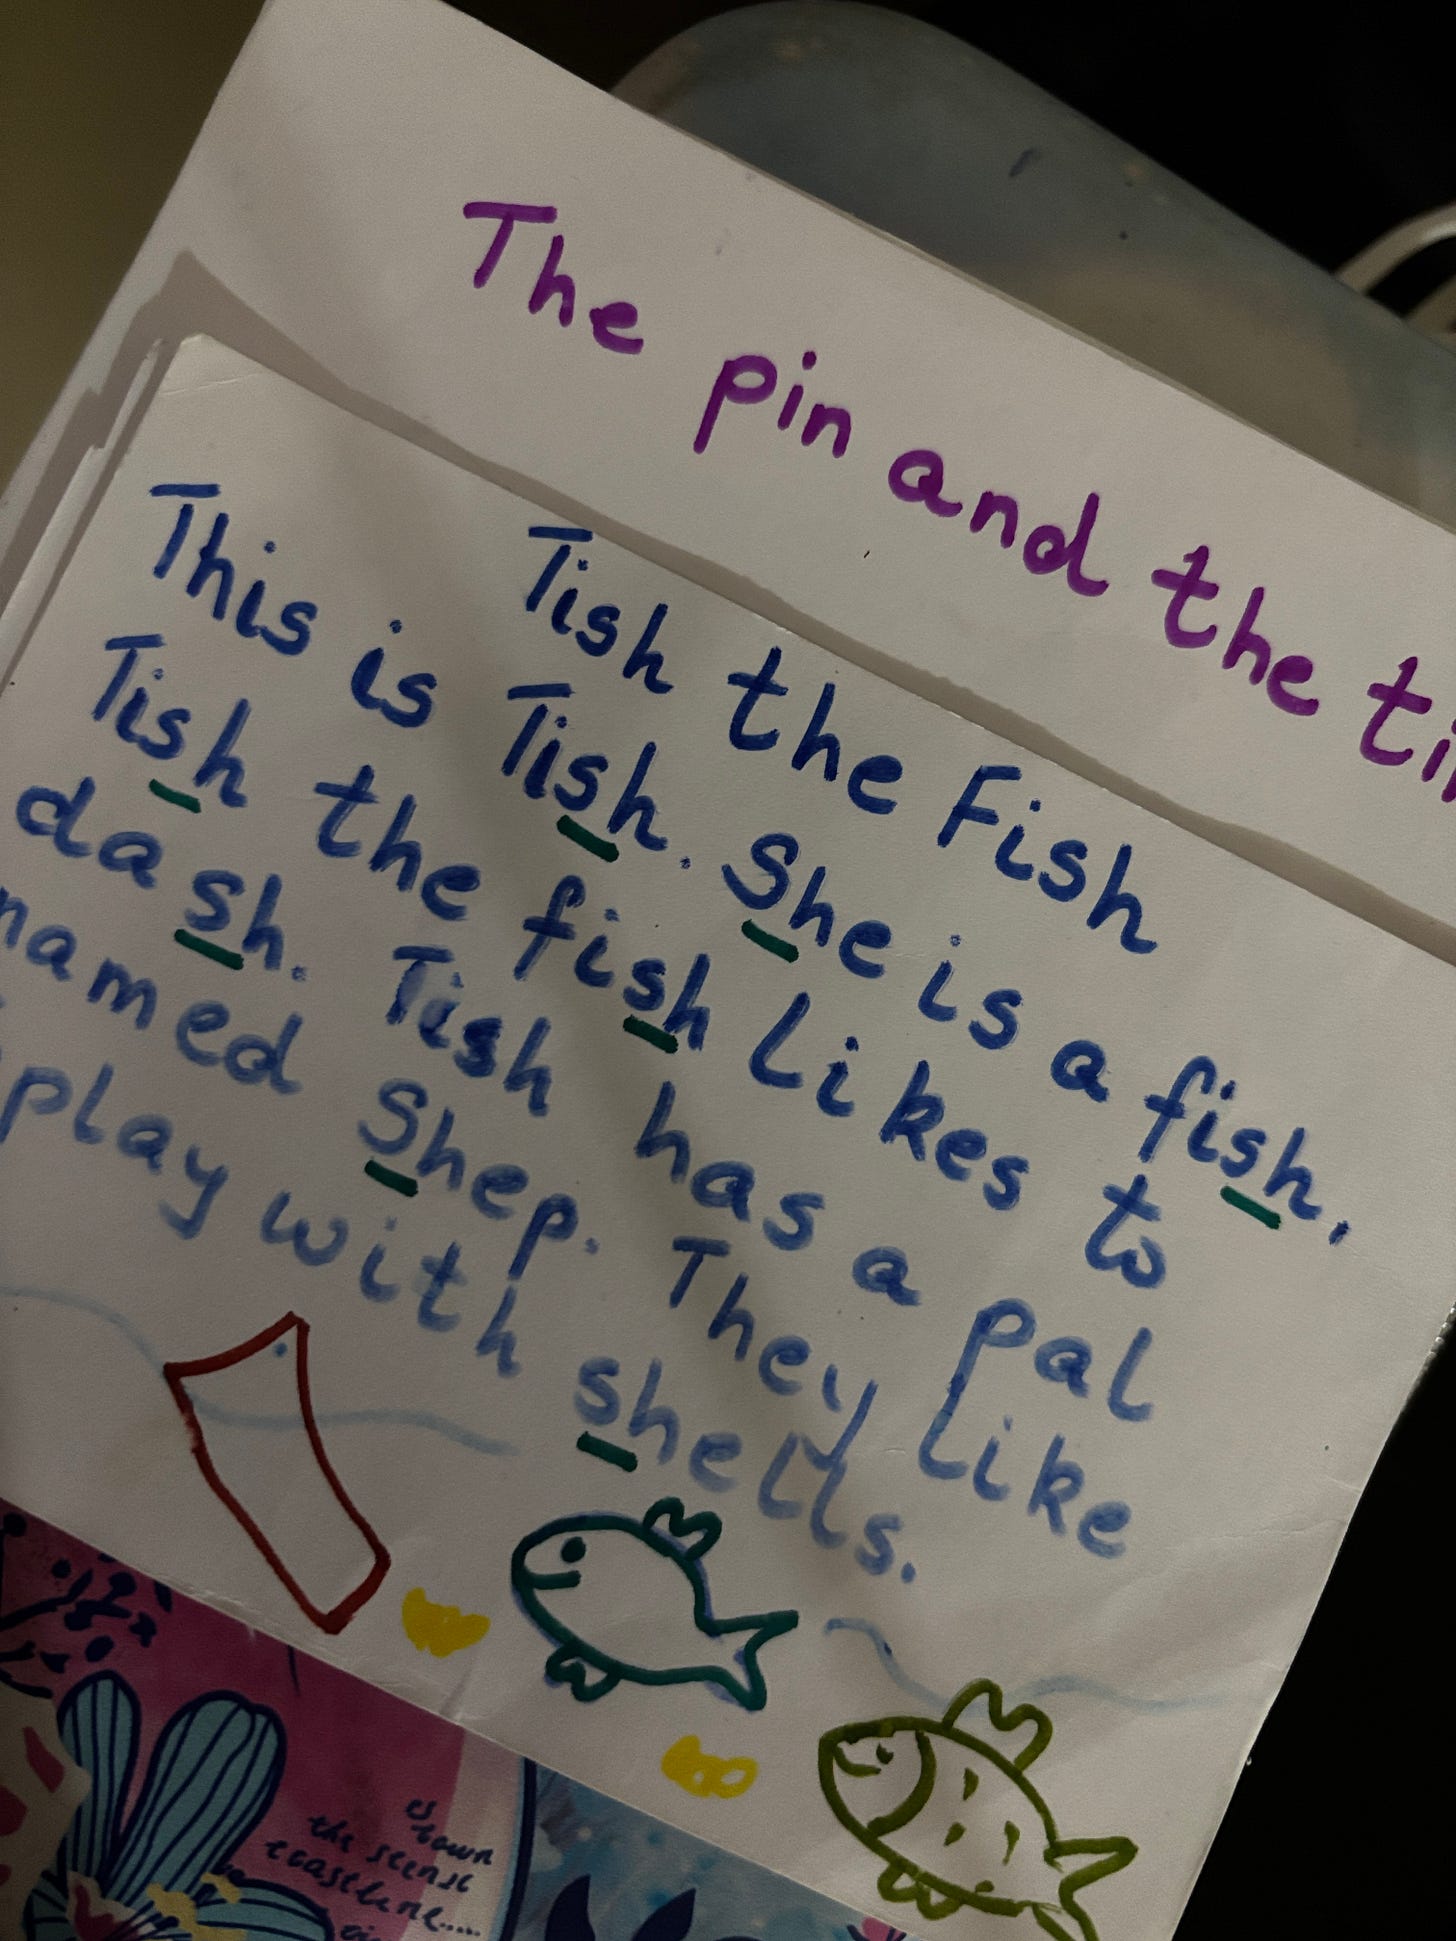 The pin and the
Tish the Fish
This is Tish. She is a fish.
Tish the fish likes to
dash. Tish has a pal
named Shep. They like
play with shells.
town
the
coastline.....